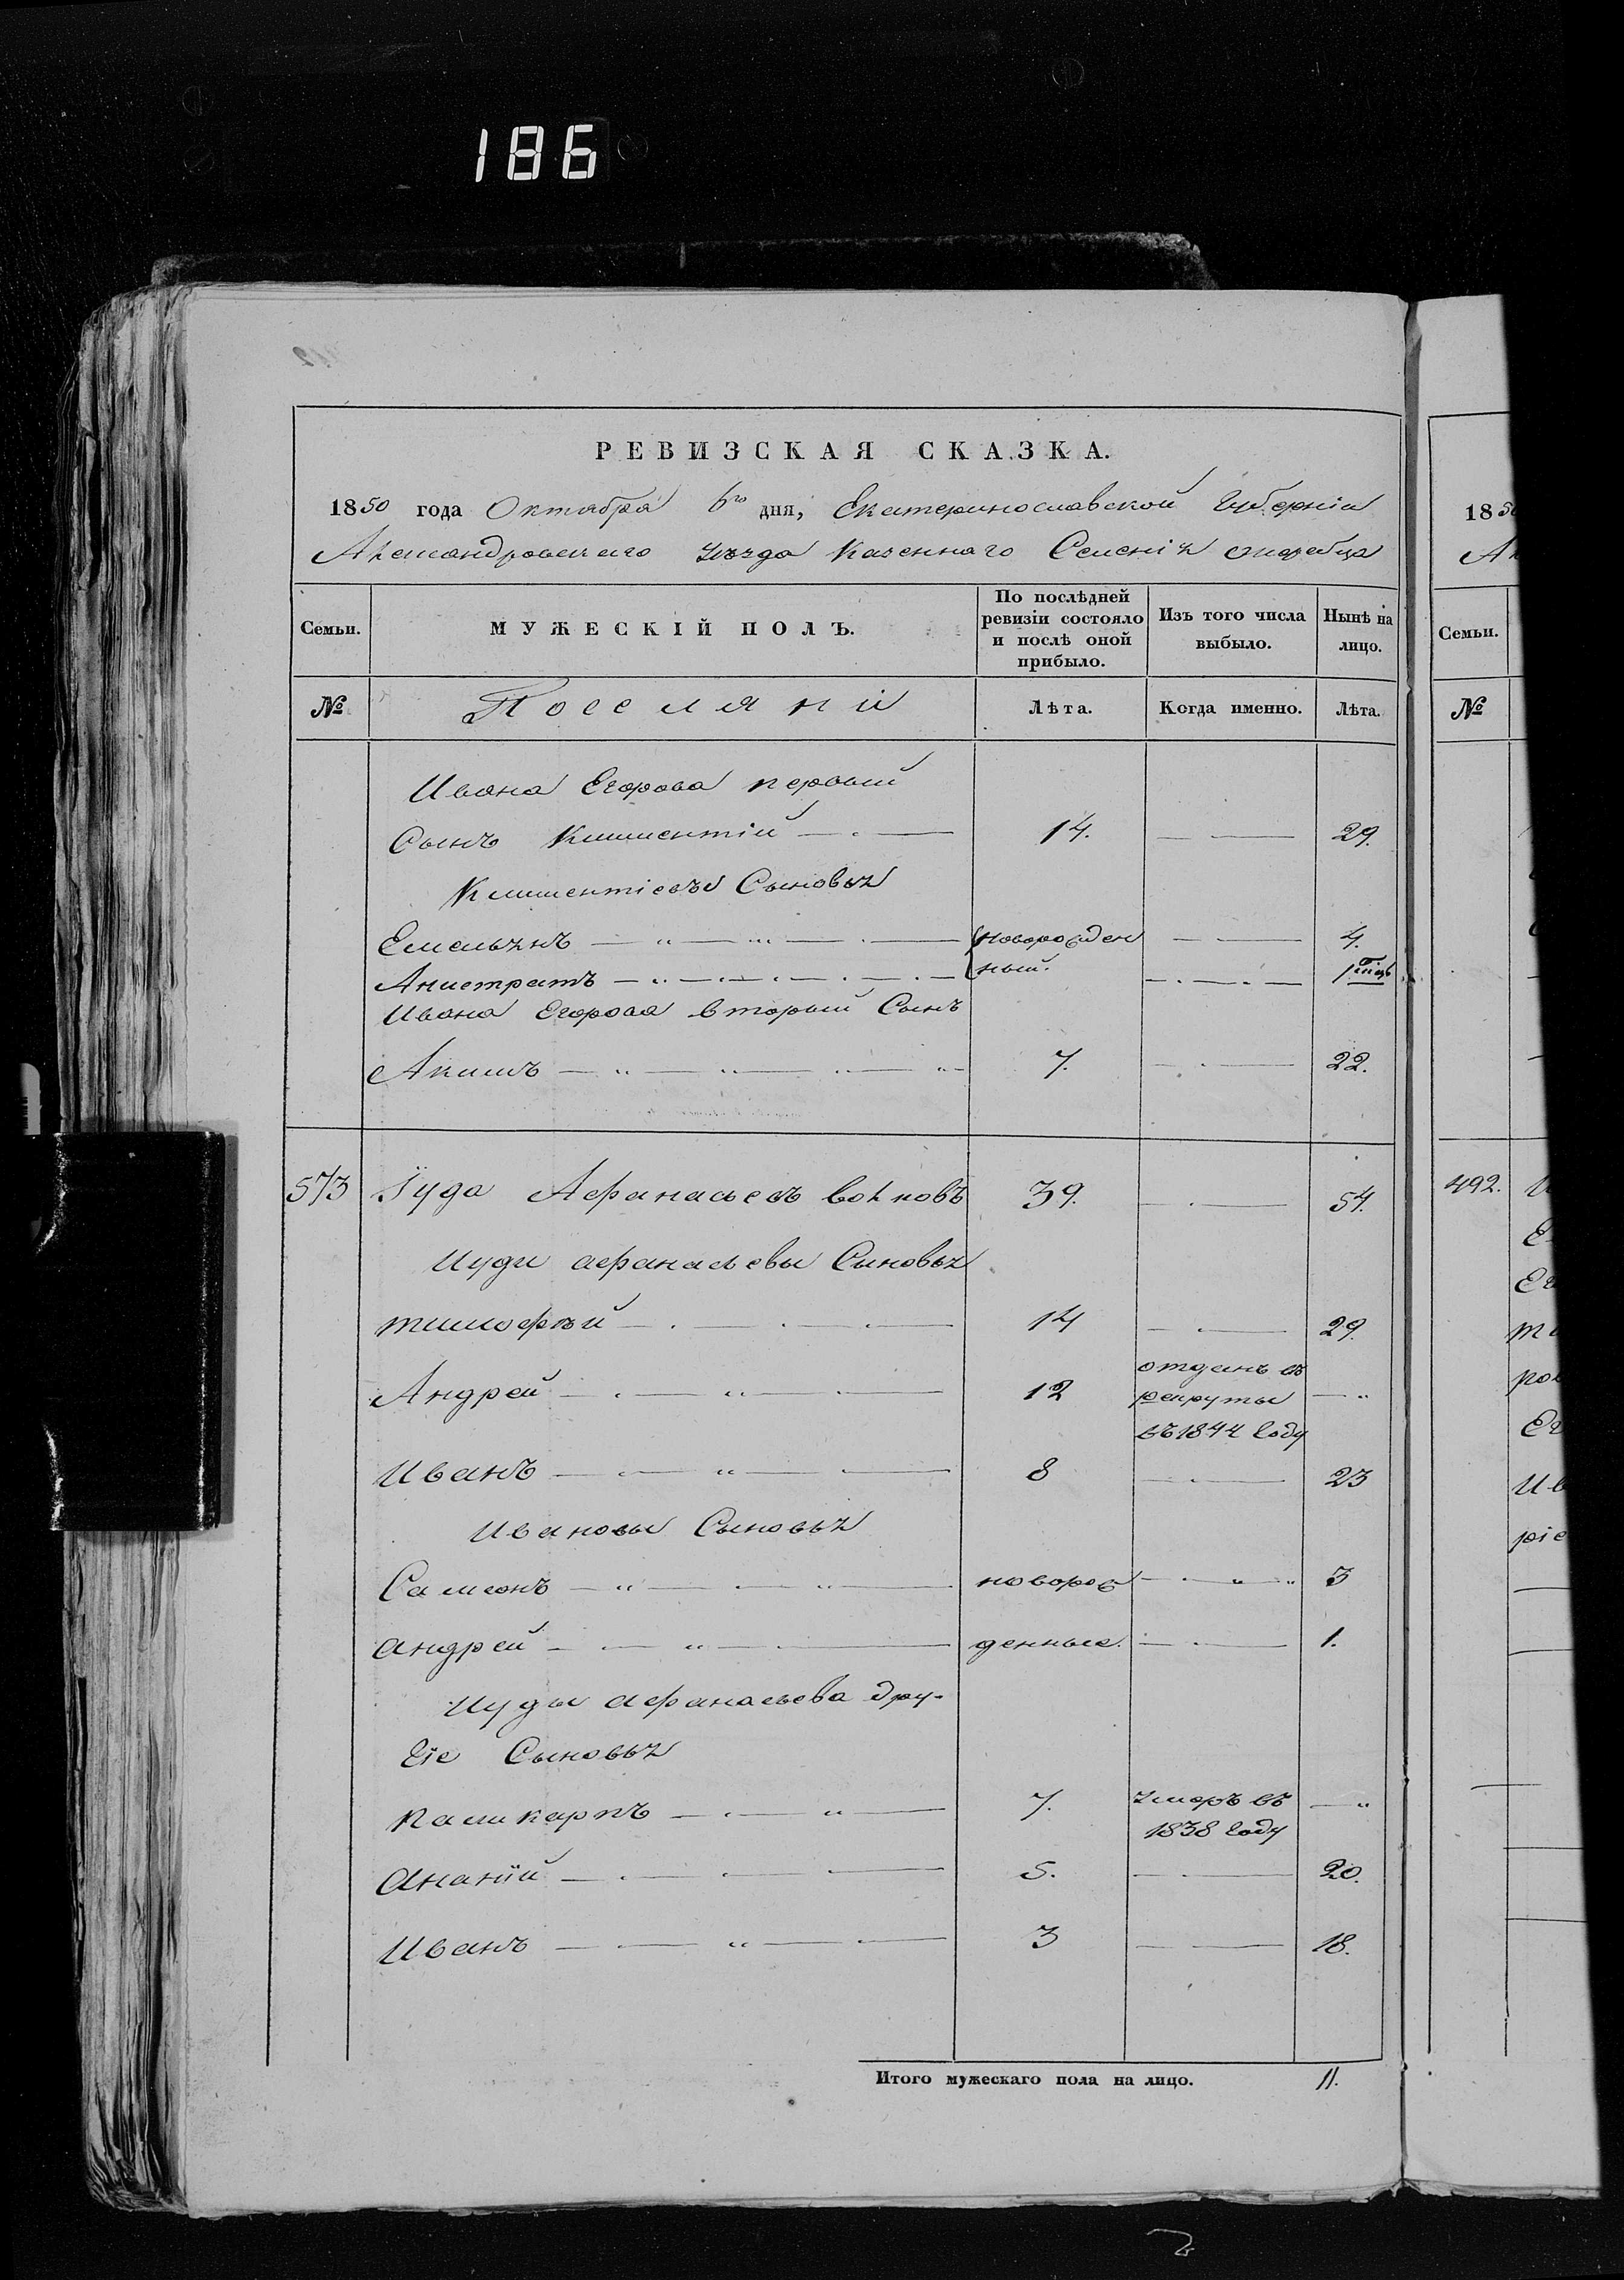 186
РЕВИЗСКАЯ СКАЗКА.
1850 года Октября 6го дня, Екатеринославской Губерніи
Александровскаго уѣзда Казеннаго Селенія
Семьи.
МУЖЕСКІЙ ПОЛЪ.
По послѣдней ревизіи состояло и послѣ оной прибыло.
Изъ того числа выбыло.
Нынѣ на лицо.
№
Поселяни
Лѣта.
Когда именно.
Лѣта.
Ивана Егорова первый
Сынъ Климентій 14. 29.
Климентіевы Сыновья
Емельянъ новорожден 4.
Анистратъ ный. 1
Ивана Егорова вторый Сынъ
Акимъ 7. 22.
573 Іуда Афанасьевъ Волковъ 39. 54.
Иуди афанасьевы Сыновья
тимофѣй 14 29.
Андрей 12 отданъ въ рекруты въ 1844 году
Иванъ 8 23
Ивановы Сыновья
Самсонъ новорож 3
андрей денные. 1.
Иуды афанасьева дру-
гіе Сыновья
Паликарпъ 7. умеръ въ 1838 году
Ананій 5. 20.
Иванъ 3 18.
Итого мужескаго пола на лицо. 11.
1850
Семьи.
№
492.